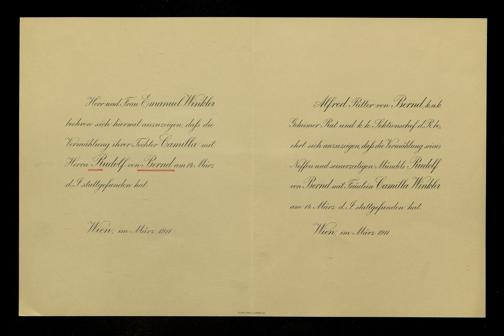 Herr und Frau Emanuel Winkler
beehren sich hiermit anzuzeigen, daß die
Vermählung ihrer Tochter Camilla mit
Herrn Rudolf von Bernd am 14. März
d. J. stattgefunden hat.
Wien, im März 1911
Alfred Ritter von Bernd, k.u.k.
Geheimer Rat und k. k. Sektionschef d. R. etc.,
ehrt sich anzuzeigen, daß die Vermählung seines
Neffen und seinerzeitigen Mündels Rudolf
von Bernd mit Fräulein Camilla Winkler
am 14. März d. J. stattgefunden hat.
Wien, im März 1911